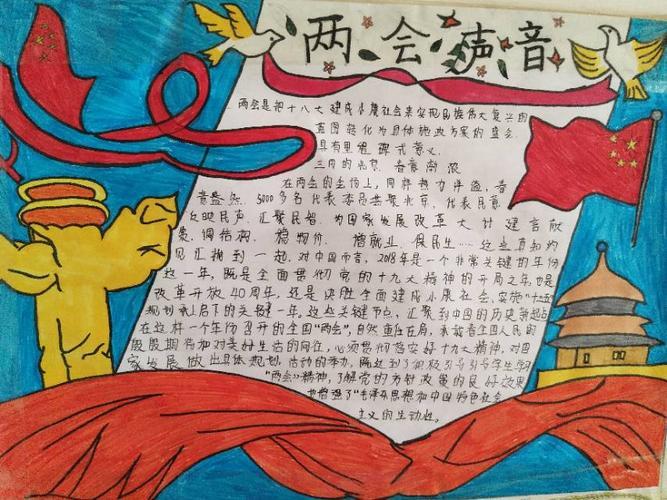 两会声音
两会是把十八大建成小康社会来实现民族伟大复兴的
蓝图转化为具体施政方案的盛会
具有里程碑式意义.
三月的北京、春意渐浓
在两会的会场上,同样热力洋溢,春
意盎然. 5000多名代表委员共聚北京,代表民意
反映民声、汇聚民智、为国家发展改革大计建言献
策、调结构、稳物价、增就业、保民生……这些真知灼
见汇聚到一起、对中国而言,2018年是一个非常关键的年份
这一年,既是全面贯彻党的十九大精神的开局之年,也是
改革开放40周年,还是决胜全面建成小康社会,实施"十三五"
规划承上启下的关键一年。这些关键节点、汇聚到中国的历史
在这样一个年份召开的全国"两会",自然重任在肩,承载着全国人民的
殷殷期待和对美好生活的向往,必须贯彻落实好十九大精神,对国
家发展做出具体规划,活动的举办,达到了积极引导学生学习
"两会"精神,了解党的方针政策的良好效果
增强了"毛泽东思想和中国特色社会
主义的生动性。